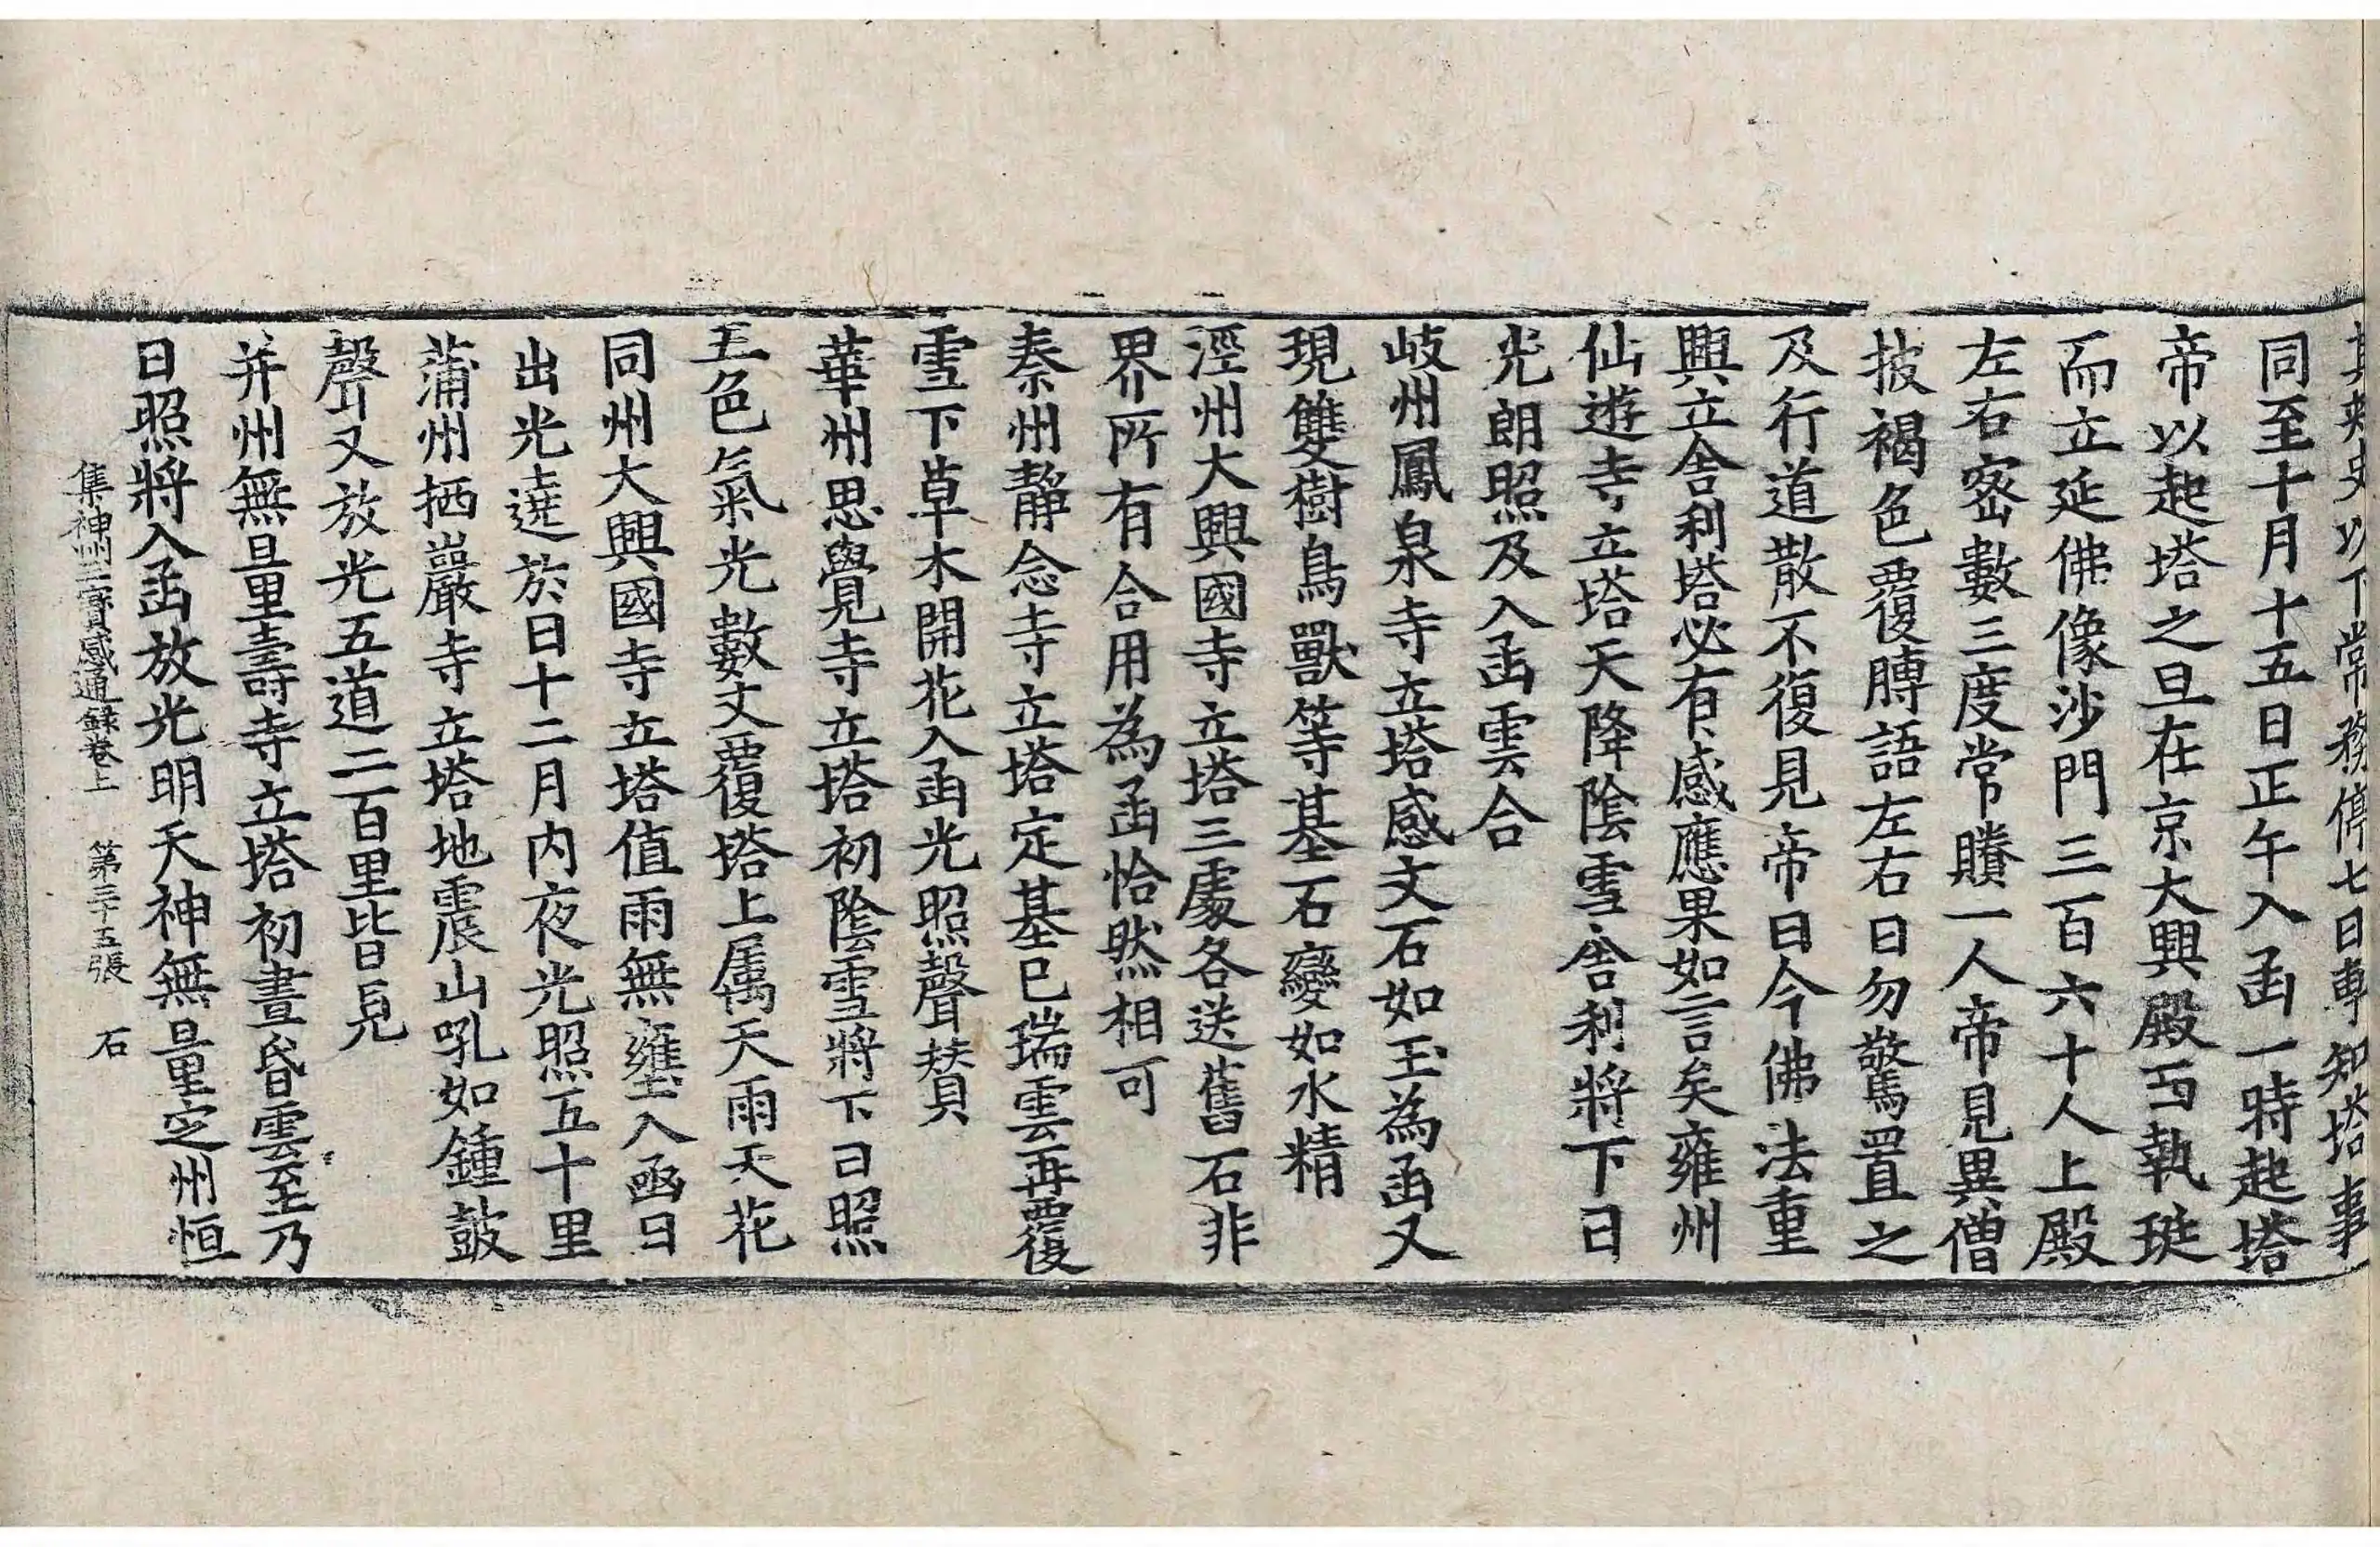 其刺史以下常務停七日專知塔事
同至十月十五日正午入函一時起塔
帝以起塔之旦在京大興殿西執珽
而立延佛像沙門三百六十人上殿
左右密數三度常賸一人帝見異僧
披褐色覆膊語左右曰勿驚置之
及行道散不復見帝曰今佛法重
興立舍利塔必有感應果如言矣雍州
仙遊寺立塔天降陰雪舍利將下日
光朗照及入函雲合
岐州鳳泉寺立塔感文石如玉為函又
現雙樹鳥獸等基石變如水精
涇州大興國寺立塔三處各送舊石非
界所有合用為函恰然相可
秦州靜念寺立塔定基已瑞雲再覆
雪下草木開花入函光照聲賛
華州思覺寺立塔初陰雪將下日照
五色氣光數丈覆塔上属天雨天花
同州大興國寺立塔值雨無壅入函日
出光遶於日十二月內夜光照五十里
蒲州栖巖寺立塔地震山吼如鍾鼓
聲又放光五道二百里皆見
并州無量壽寺立塔初晝昏雲至乃
日照將入函放光明天神無量定州恒
集神州三寶感通録卷上　第三十五張　石